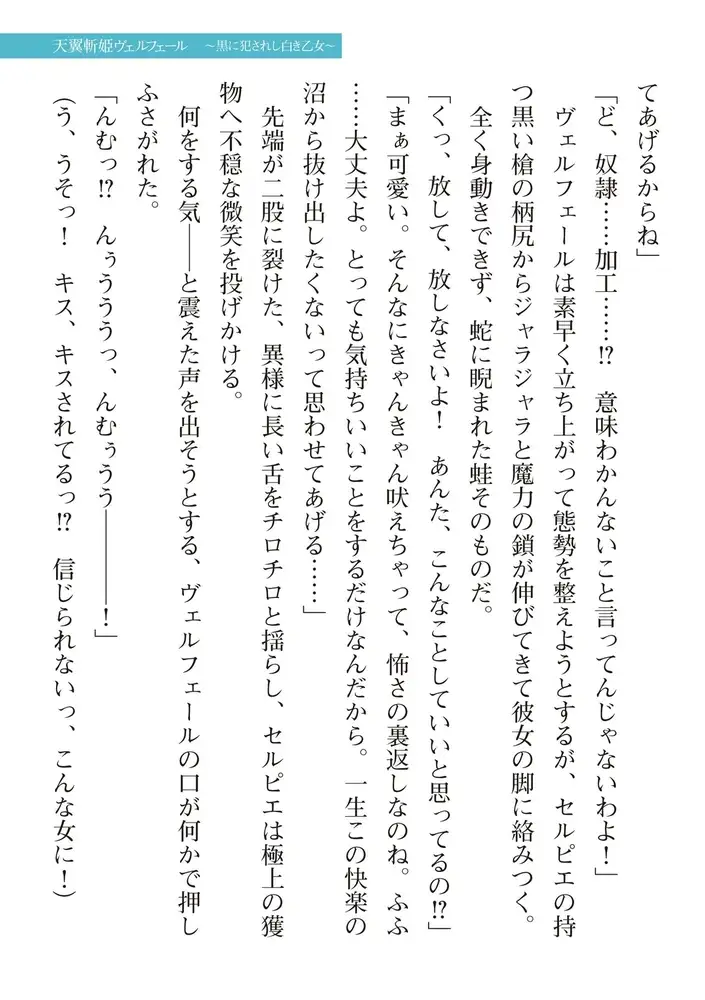 天翼斬姫ヴェルフェール　～黒に犯されし白き乙女～
てあげるからね」
「ど、奴隷……加工……!?　意味わかんないこと言ってんじゃないわよ！」
　ヴェルフェールは素早く立ち上がって態勢を整えようとするが、セルピエの持
つ黒い槍の柄尻からジャラジャラと魔力の鎖が伸びてきて彼女の脚に絡みつく。
　全く身動きできず、蛇に睨まれた蛙そのものだ。
「くっ、放して、放しなさいよ！　あんた、こんなことしていいと思ってるの!?」
「まぁ可愛い。そんなにきゃんきゃん吠えちゃって、怖さの裏返しなのね。ふふ
……大丈夫よ。とっても気持ちいいことをするだけなんだから。一生この快楽の
沼から抜け出したくないって思わせてあげる……」
　先端が二股に裂けた、異様に長い舌をチロチロと揺らし、セルピエは極上の獲
物へ不穏な微笑を投げかける。
　何をする気――と震えた声を出そうとする、ヴェルフェールの口が何かで押し
ふさがれた。
「んむっ!?　んぅうううっ、んむぅうう――――！」
（う、うそっ！　キス、キスされてるっ!?　信じられないっ、こんな女に！）